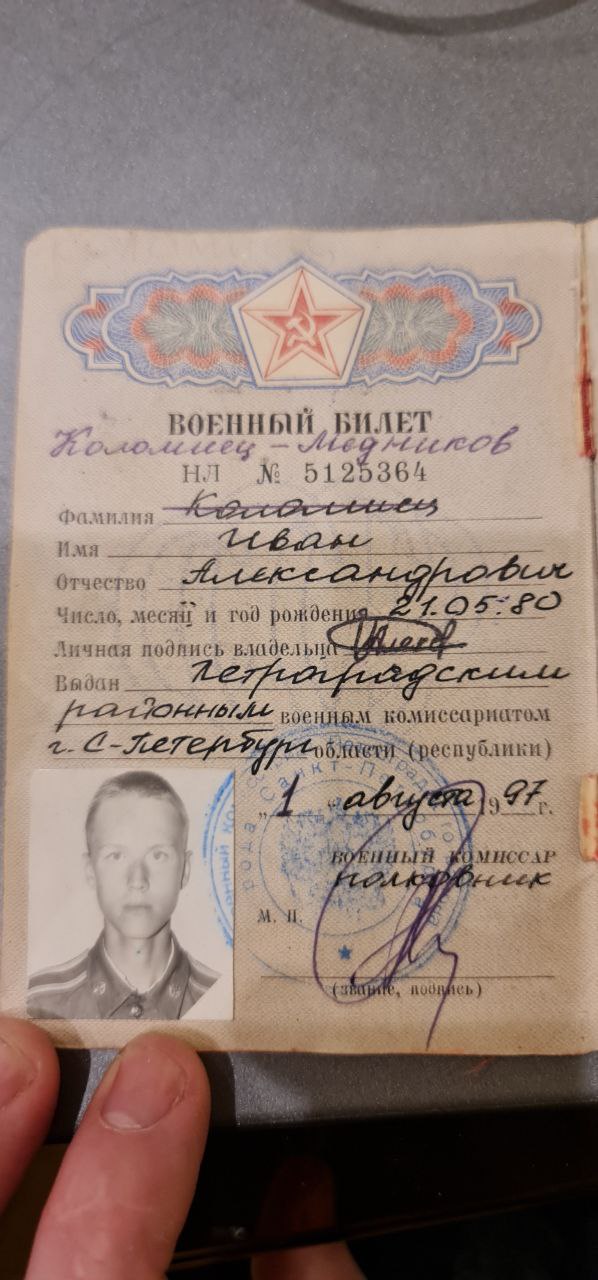 ВОЕННЫЙ БИЛЕТ
Коломиец-Медников
НЛ № 5125364
Фамилия Коломиец
Имя Иван
Отчество Александрович
Число, месяц и год рождения 21.05.80
Личная подпись владельца
Выдан Петроградским
районным военным комиссариатом
г. С-Петербург области (республики)
„1 “ августа 1997 г.
ВОЕННЫЙ КОМИССАР
полковник
М. П.
(звание, подпись)